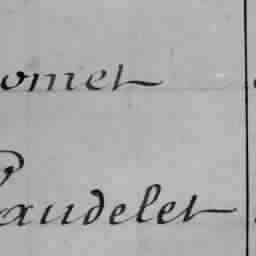 omet
audelet